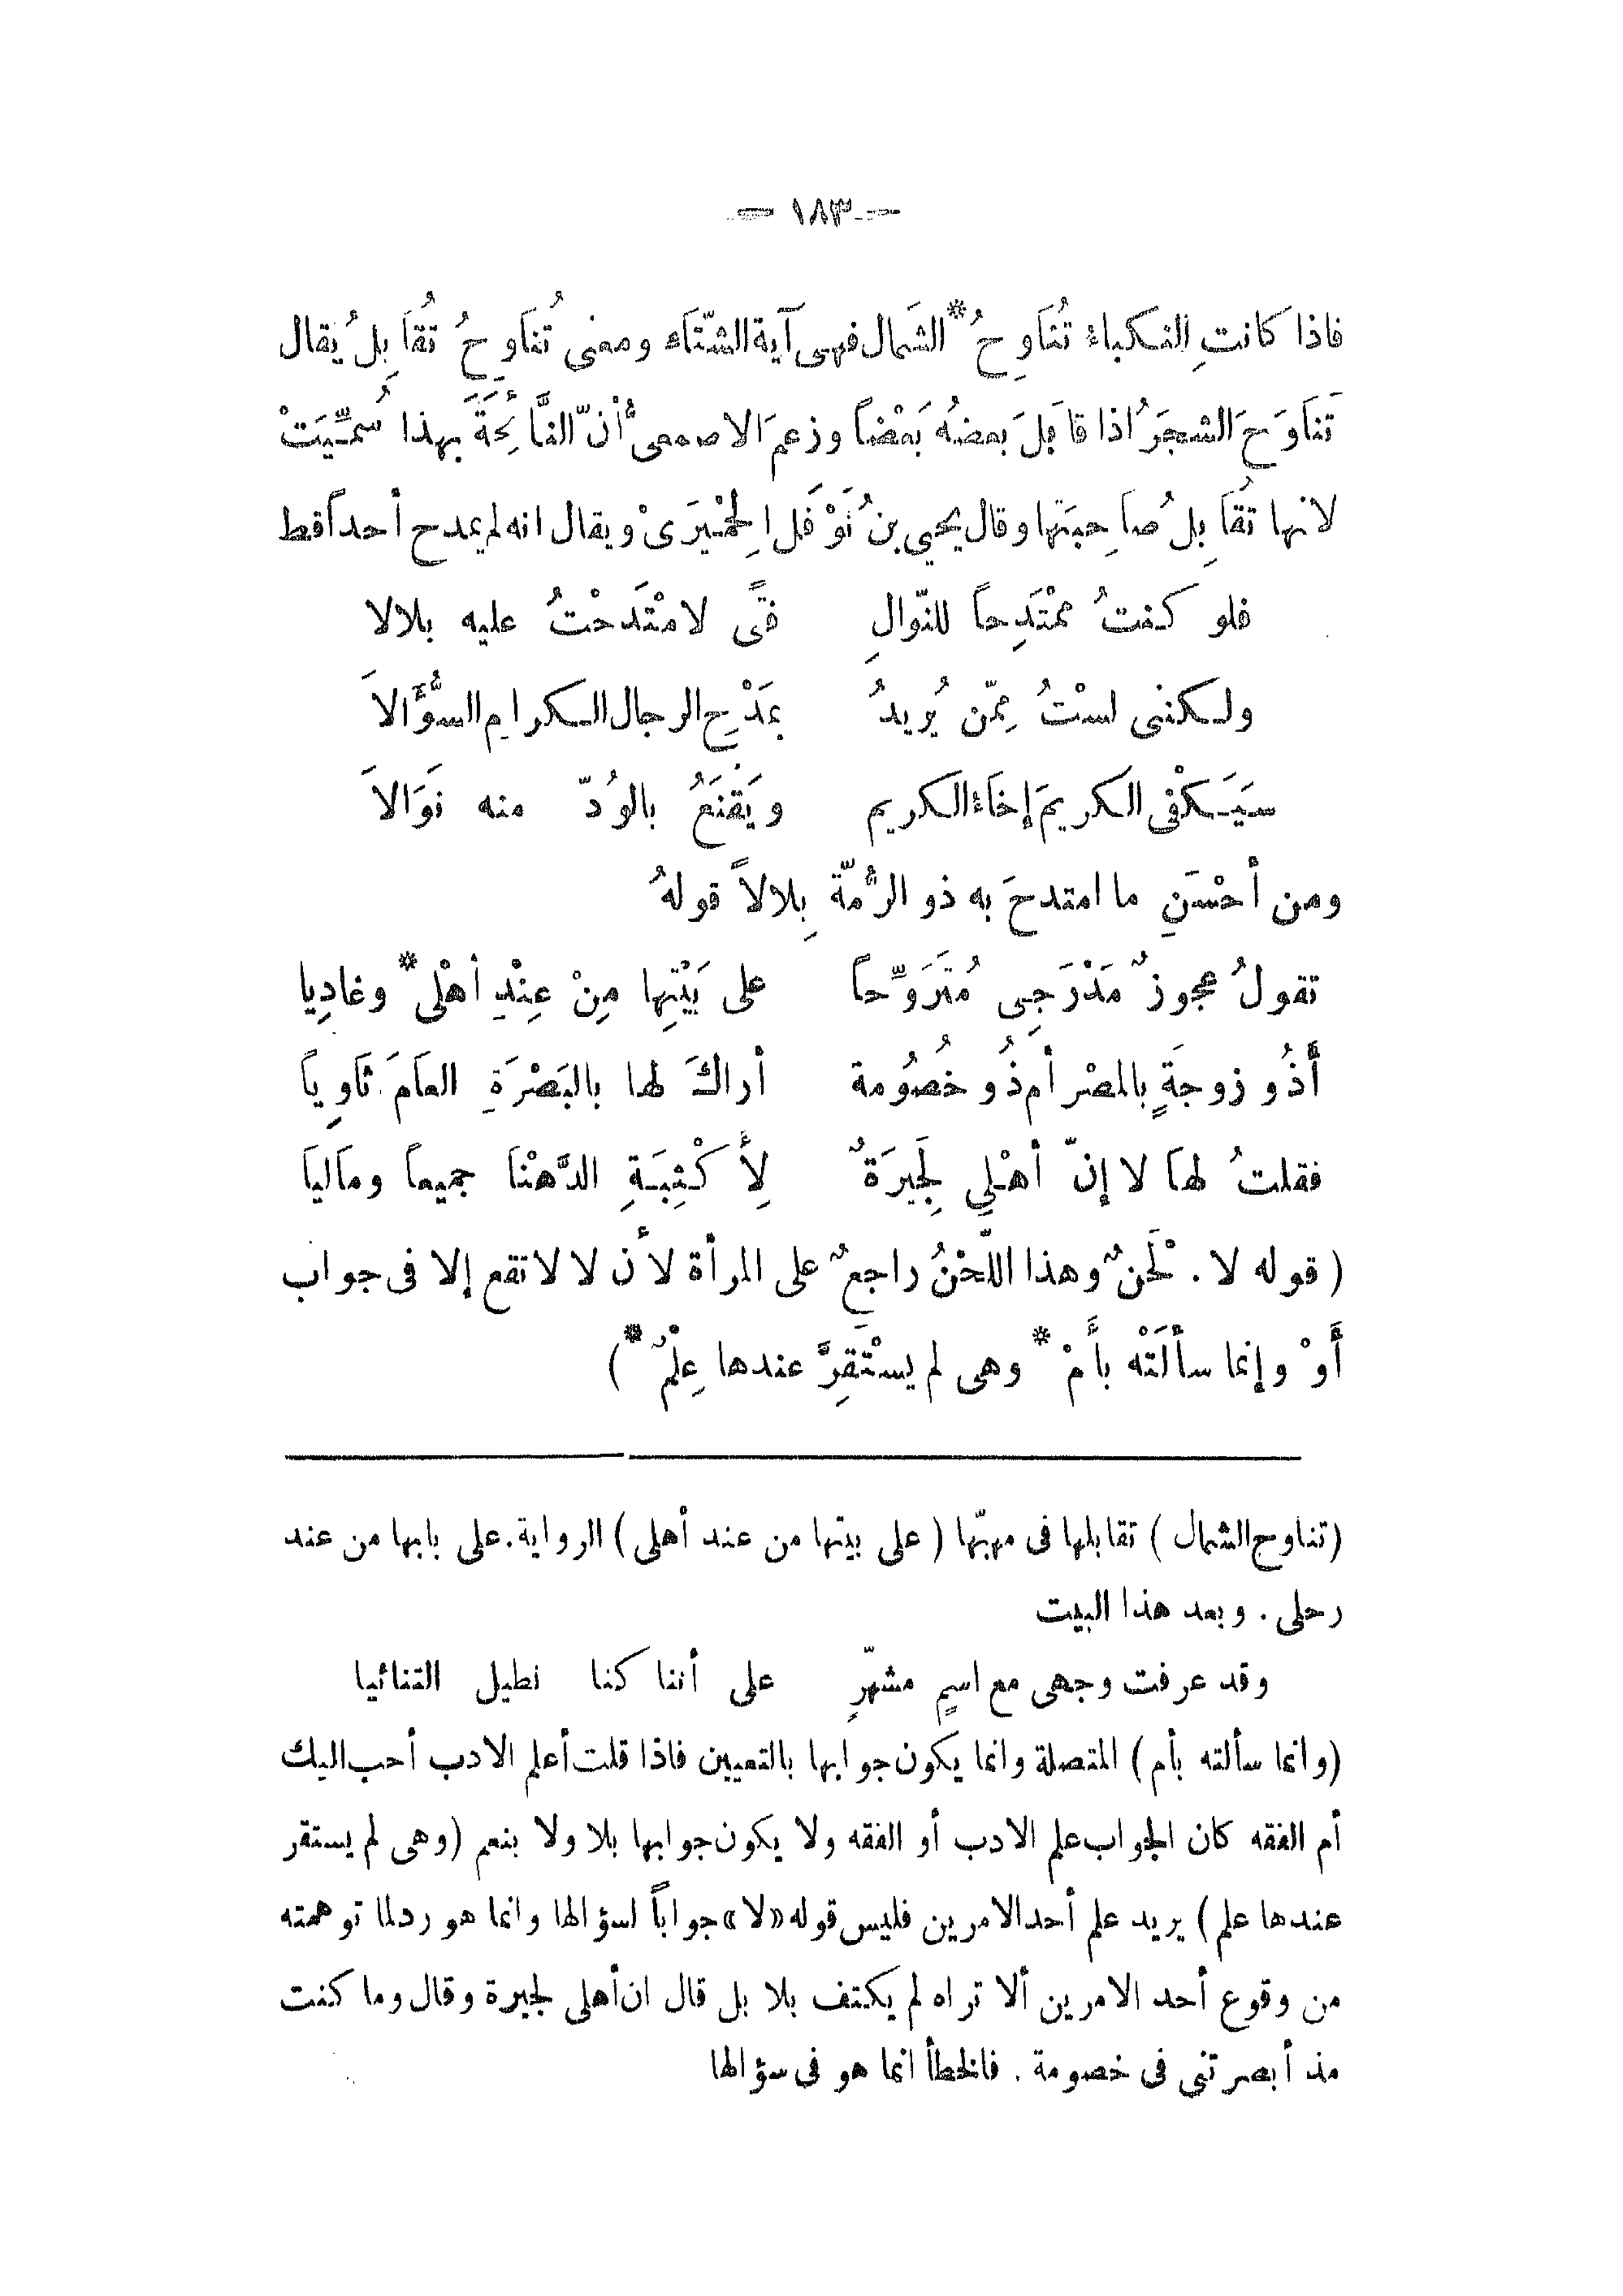 — ١٨٣ —
فاذا كانتِ النكباءُ تُنَاوِحُ * الشَمال فهى آية الشّتَاء ومعنى تُنَاوِحُ تُقَابِلُ يُقال
تَنَاوَحَ الشجَرُ اذا قَابَلَ بعضُهُ بَعْضاً وزعمَ الاصمعىُّ أنّ النَّائِحَةَ بهذا سُمِّيَتْ
لانها تُقَابِلُ صاَحِبَتَها وقال يحيى بن نَوْفَل الحِمْيَرَىْ ويقال انه لم يمدح أحداً قط
فلو كنتُ ممْتَدِحاً للنّوالِ فتًى لامْتَدحْتُ عليه بلالا
ولكننى لسْتُ مِمّن يُريدُ بمَدْحِ الرجال الكرامِ السُّؤَالاَ
سيَكْفى الكريمَ إخَاءُ الكريم ويَقْنَعُ بالوُدّ منه نَوَالاَ
ومن أحْسَنِ ما امتدحَ به ذو الرُّمّة بِلالاً قولهُ
تقولُ عجوزٌ مَدْرَجِى مُتَرَوِّحاً على بَيْتِها مِنْ عِنْدِ أهْلى * وغادِيا
أَذُو زوجَةٍ بالمصْر أم ذُو خُصُومة أراكَ لها بالبَصْرَةِ العاَمَ ثاَوِياً
فقلتُ لهاَ لا إنّ أهْلِي لَجِيرَةٌ لِأَكْثِبَةِ الدَّهْنَا جميعاً وماَلياَ
( قوله لا . لَحْنٌ وهذا اللّحْنُ راجعٌ على المرأة لأن لا لا تقع إلا فى جواب
أَوْ وإنما سألَتْه بأَمْ * وهى لم يسْتَقِرَّ عندها عِلْمٌ * )
(تناوح الشمال ) تقابلها فى مهبّها ( على بيتها من عند أهلى ) الرواية . على بابها من عند
رحلى . وبعد هذا البيت
وقد عرفت وجهى مع اسمٍ مشهّرٍ على أننا كنا نطيل التنائيا
(وانما سألته بأم ) المتصلة وانما يكون جوابها بالتعيين فاذا قلت أعلم الادب أحب اليك
أم الفقه كان الجواب علم الادب أو الفقه ولا يكون جوابها بلا ولا بنعم (وهى لم يستقر
عندها علم ) يريد علم أحد الامرين فليس قوله «لا» جواباً لسؤالها وانما هو رد لما توهمته
من وقوع أحد الامرين ألا تراه لم يكتف بلا بل قال ان أهلى لجيرة وقال وما كنت
مذ أبصرتنى فى خصومة . فالخطأ انما هو فى سؤالها